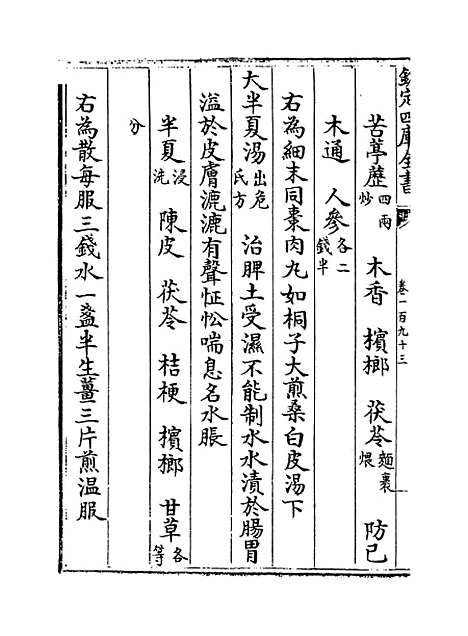 欽定四庫全書
卷一百九十三
苦葶藶四兩炒 木香 檳榔 茯苓麵裹煨 防已
木通 人參各二錢半
右為細末同棗肉丸如桐子大煎桑白皮湯下
大半夏湯出危氏方 治脾土受濕不能制水水漬於腸胃
溢於皮膚漉漉有聲怔忪喘息名水脹
半夏浸洗 陳皮 茯苓 桔梗 檳榔 甘草各等
分
右為散每服三錢水一盞半生薑三片煎温服